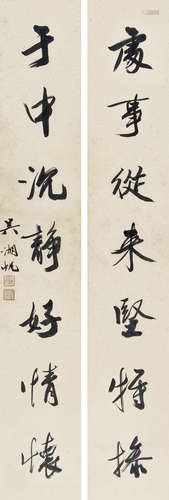 處事從来堅特操
于中沈靜好情懷
吳湖帆